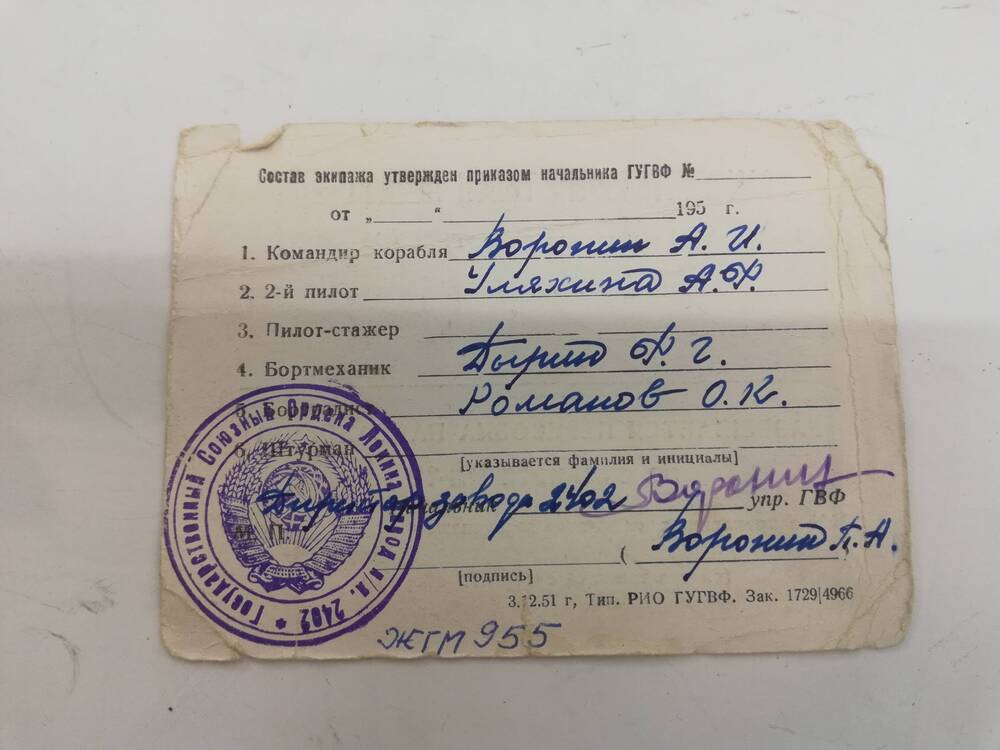 Состав экипажа утвержден приказом начальника ГУГВФ №
от „ “ 195 г.
1. Командир корабля Воронин А. И.
2. 2-й пилот Уляхина А.Ф.
3. Пилот-стажер
4. Бортмеханик Ф. Г.
5. Бортрадист Романов О.К.
6. Штурман
[указывается фамилия и инициалы]
завода 2402 Воронин упр. ГВФ
М. П. ( Воронин П.А.
[подпись]
3.12.51 г, Тип. РИО ГУГВФ. Зак. 1729|4966
Государственный Союзный Ордена Ленина завод п/я. 2402 *
ЖГМ 955